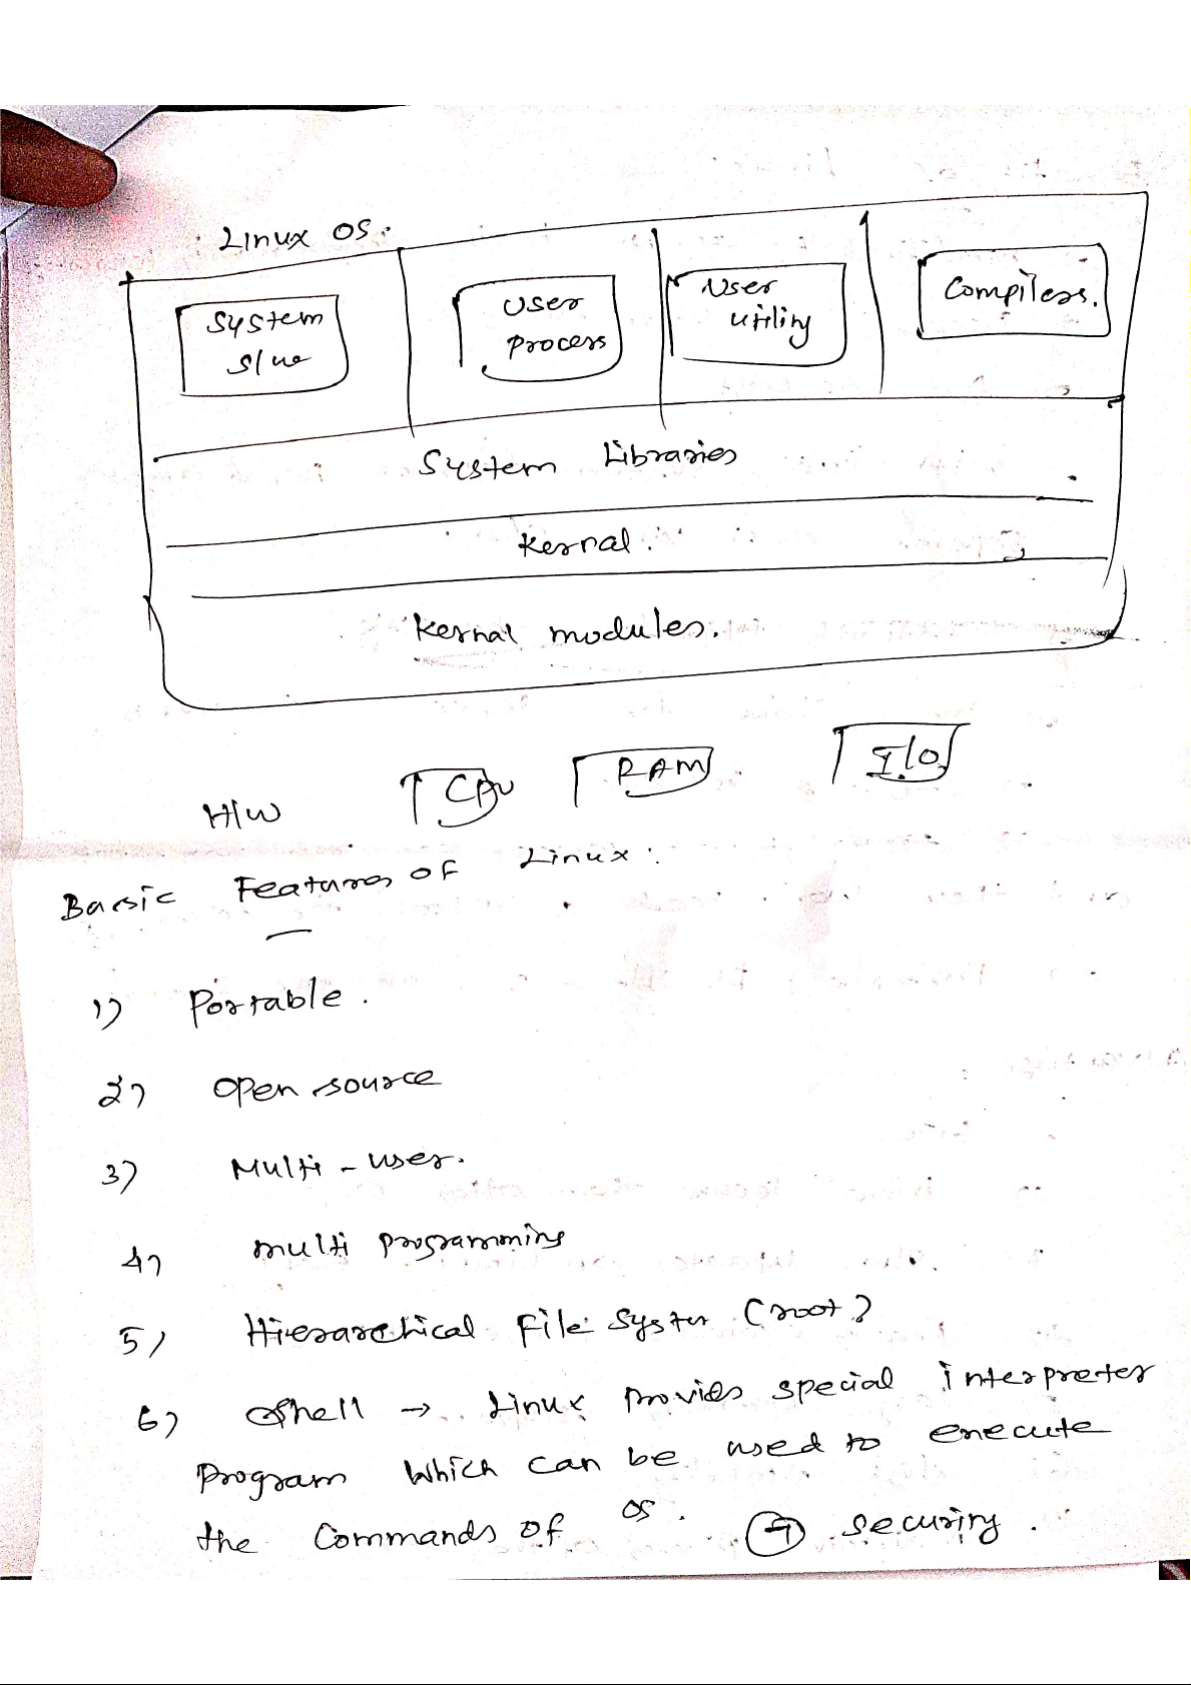 Linux OS.
System
S/w
User
Process
User
utility
Compilers.
System Libraries
Kernal.
Kernal modules.
H/W
CPU
RAM
I/O
Basic Features of Linux:
1) Portable.
2) open source
3) Multi-user.
4) multi programming
5) Hierarchical File System (root)
6) Shell → Linux provids special interpreter
Program which can be used to execute
the Commands of OS.
7 security.